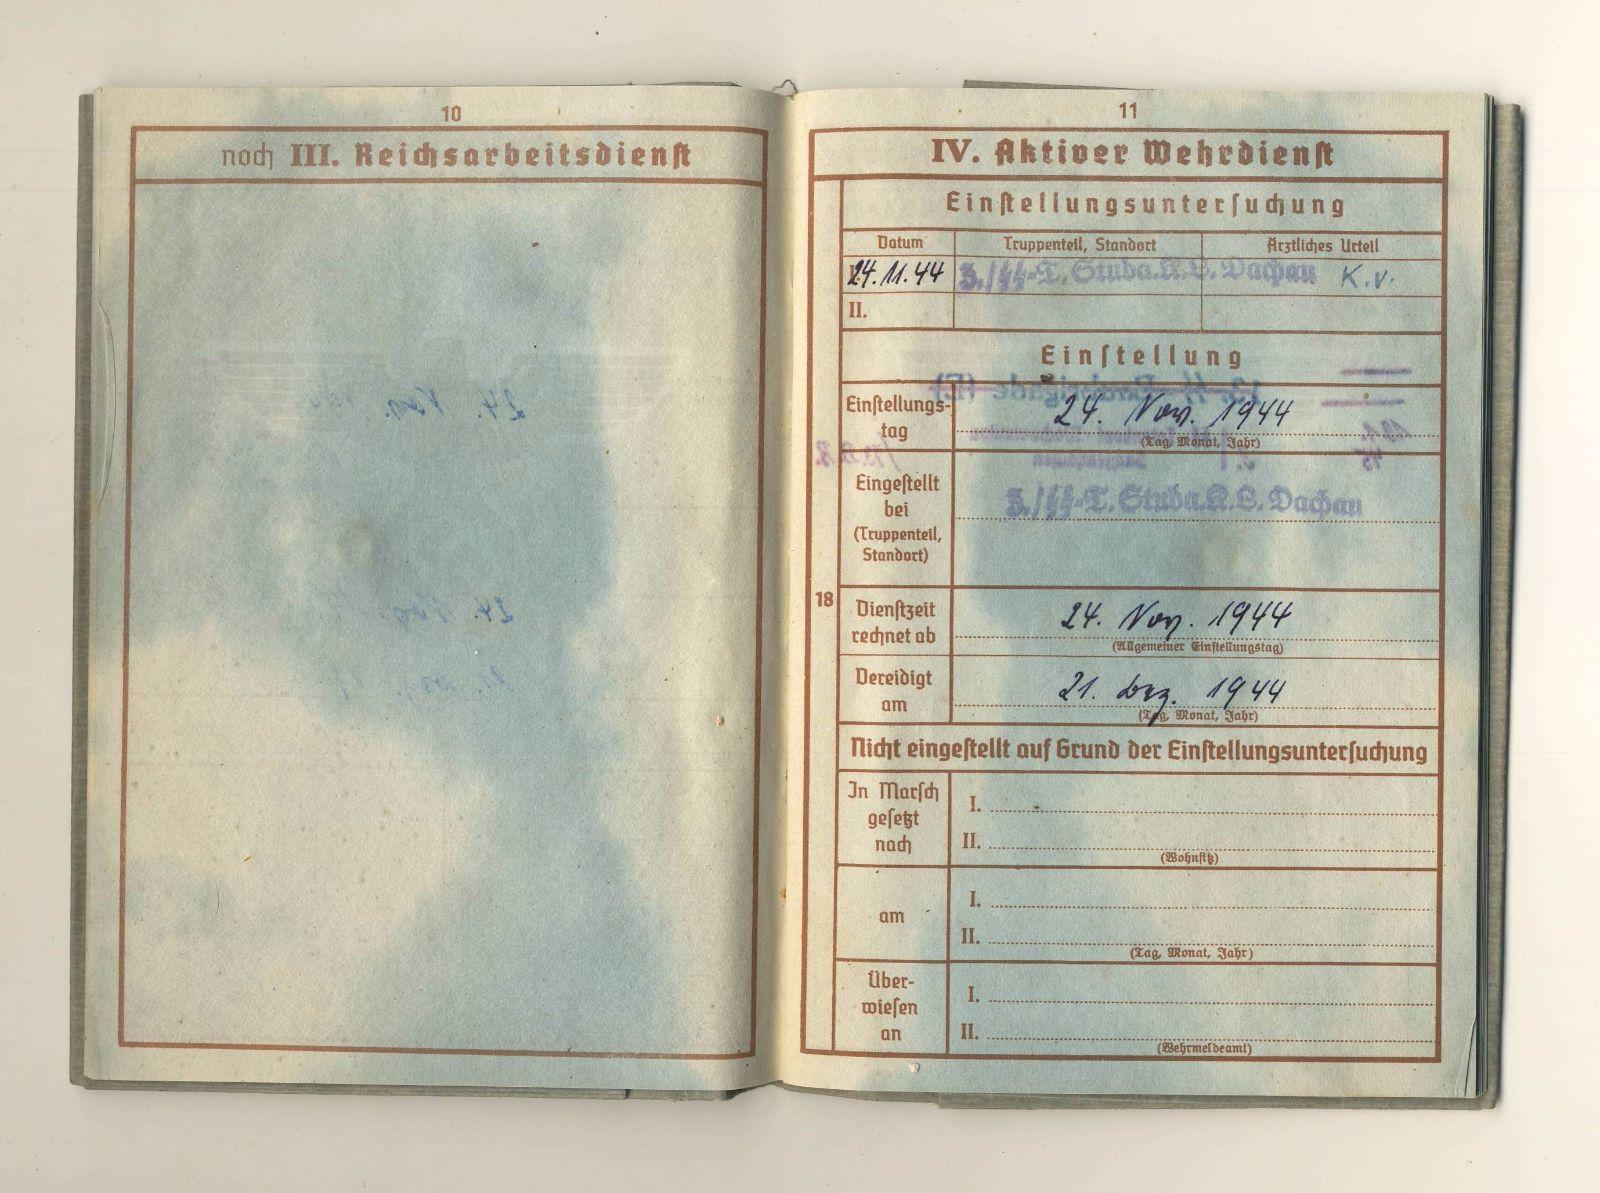 10
noch III. Reichsarbeitsdienst
11
IV. Aktiver Wehrdienst
Einstellungsuntersuchung
Datum Truppenteil, Standort Ärztliches Urteil
24.11.44 3./SS-T. Stuba. K.L. Dachau K.v.
II.
Einstellung
Einstellungs-
tag
24. Nov. 1944
(Tag, Monat, Jahr)
Eingestellt
bei
(Truppenteil,
Standort)
3./SS-T. Stuba. K.L. Dachau
18
Dienstzeit
rechnet ab
24. Nov. 1944
(Allgemeiner Einstellungstag)
Vereidigt
am
21. Dez. 1944
(Tag, Monat, Jahr)
Nicht eingestellt auf Grund der Einstellungsuntersuchung
In Marsch
gesetzt
nach
I.
II.
(Wohnsitz)
am
I.
II.
(Tag, Monat, Jahr)
Über-
wiesen
an
I.
II.
(Wehrmeldeamt)